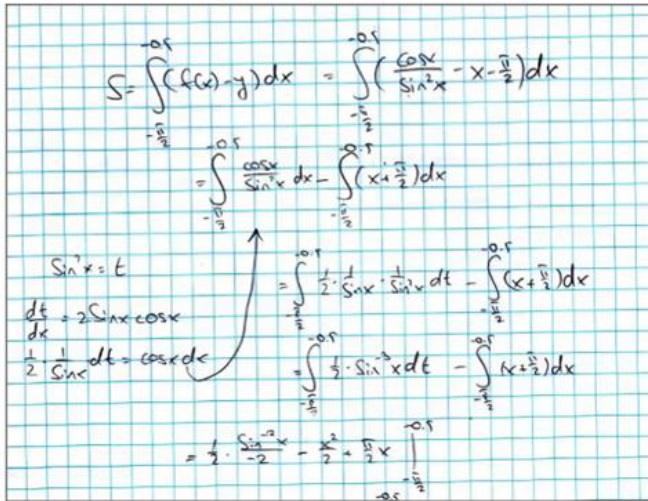 S = ∫_{-π/2}^{-0.5} (f(x) - y) dx = ∫_{-π/2}^{-0.5} (cosx/sin²x - x - π/2) dx
= ∫_{-π/2}^{-0.5} cosx/sin²x dx - ∫_{-π/2}^{-0.5} (x + π/2) dx
sin²x = t
dt/dx = 2 sinx cosx
1/2 · 1/sinx dt = cosx dx
= ∫_{-π/2}^{-0.5} 1/2 · 1/sinx · 1/sin²x dt - ∫_{-π/2}^{-0.5} (x + π/2) dx
= ∫_{-π/2}^{-0.5} 1/2 · sin⁻³x dt - ∫_{-π/2}^{-0.5} (x + π/2) dx
= 1/2 · sin⁻²x/-2 - x²/2 + π/2 x |_{-π/2}^{-0.5}
-0.5